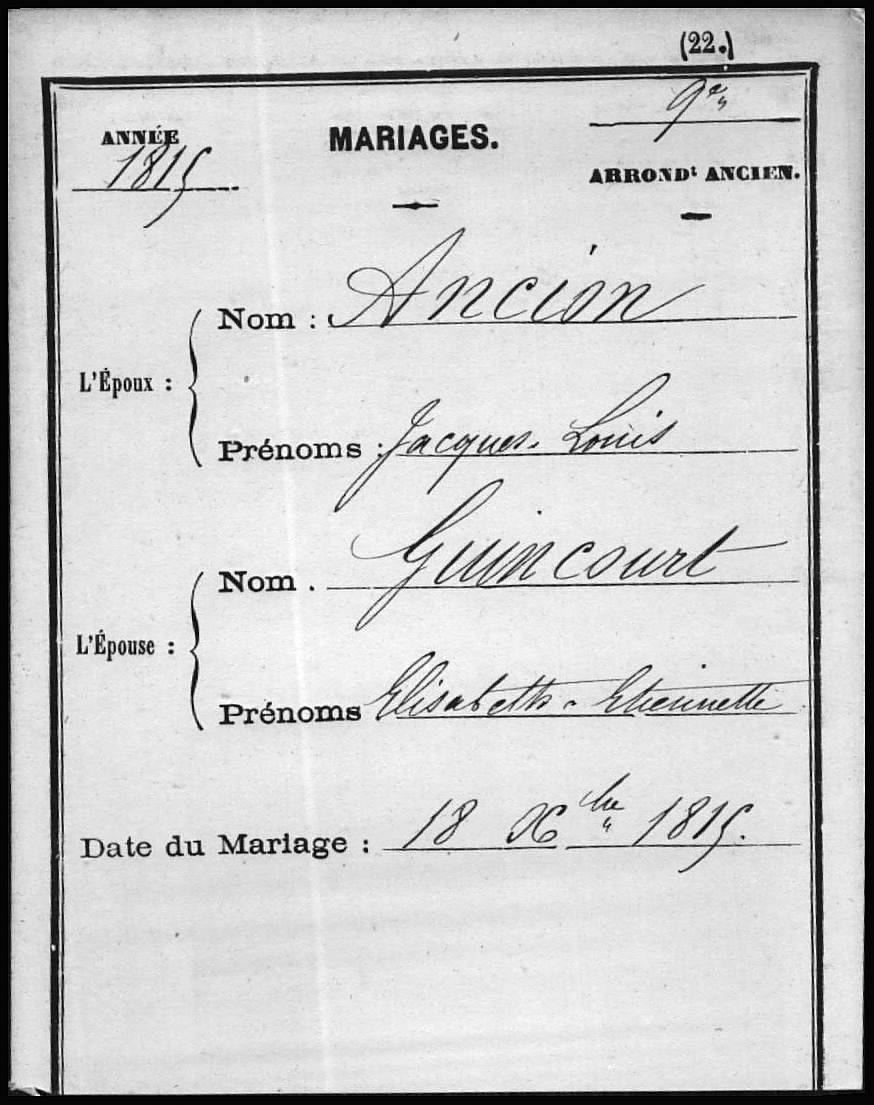 (22.)
ANNÉE
1815
MARIAGES.
9e
ARRONDt ANCIEN.
L'Époux :
Nom : Ancion
Prénoms : Jacques-Louis
L'Épouse :
Nom . Guincourt
Prénoms Elisabeth-Etiennette
Date du Mariage : 18 Xbre 1815.